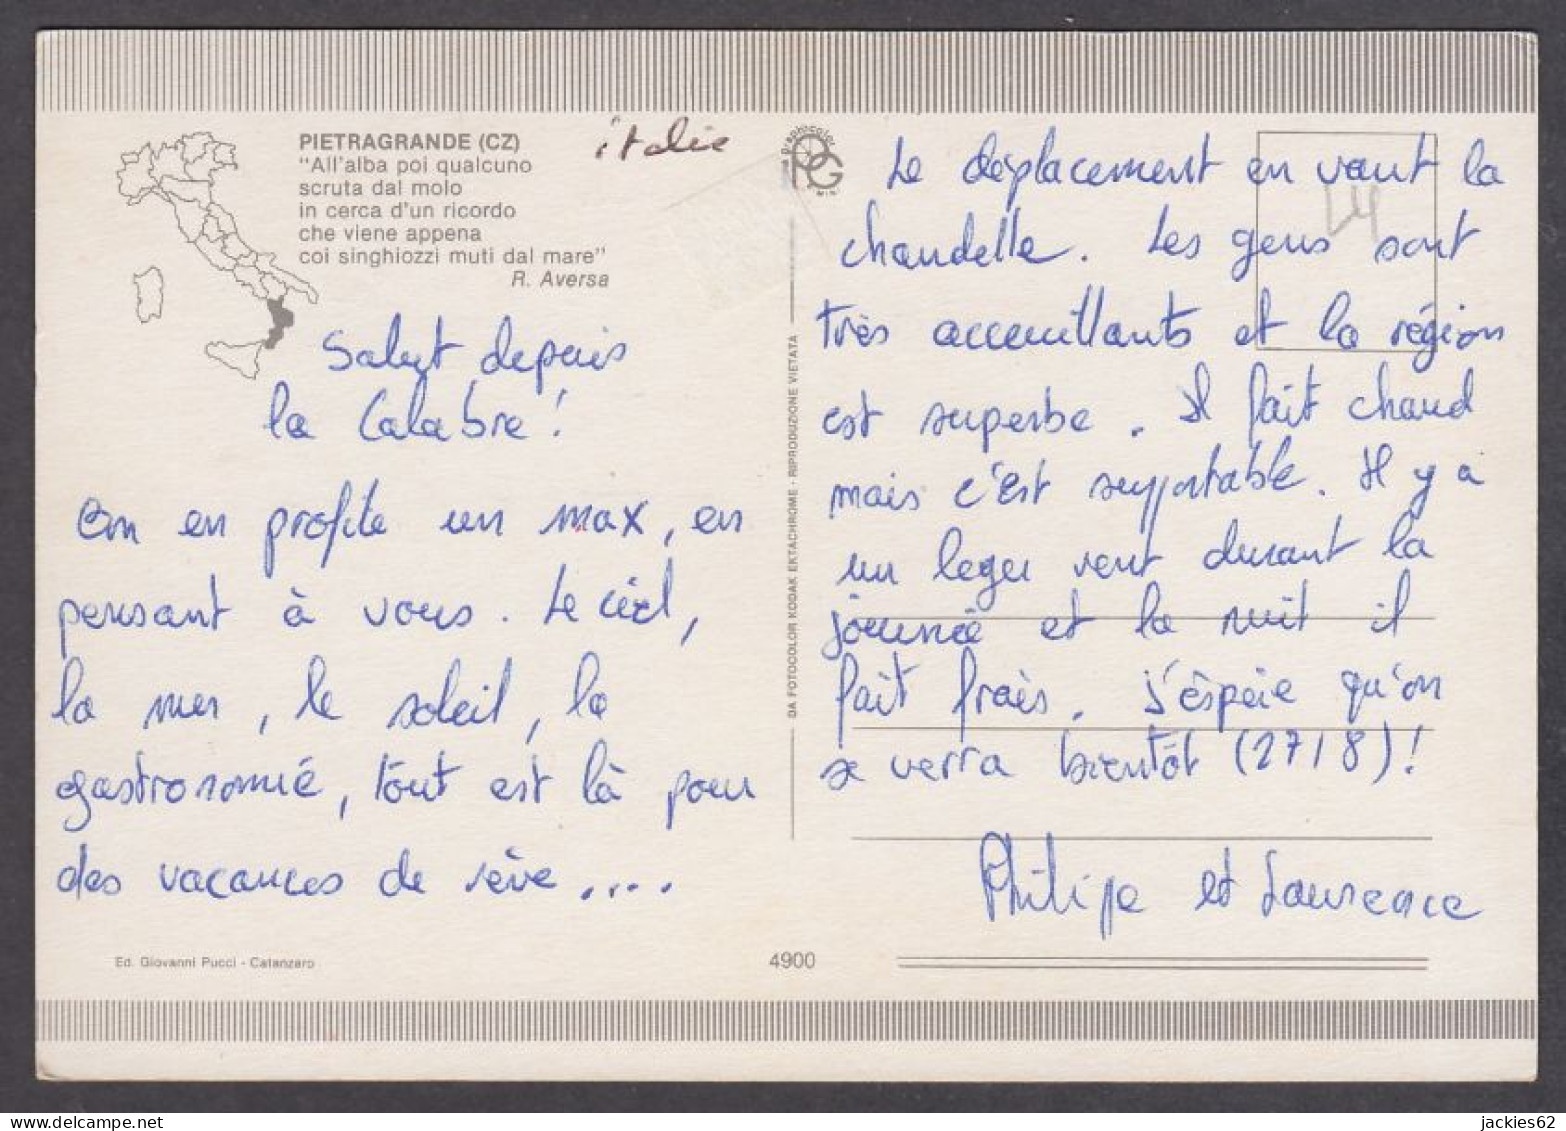 PIETRAGRANDE (CZ)
"All'alba poi qualcuno
scruta dal molo
in cerca d'un ricordo
che viene appena
coi singhiozzi muti dal mare"
R. Aversa
italie
Salut depuis
la Calabre !
On en profite un max, en
pensant à vous. Le ciel,
la mer, le soleil, la
gastronomie, tout est là pour
des vacances de rêve ....
Ed. Giovanni Pucci - Catanzaro
4900
DA FOTOCOLOR KODAK EKTACHROME - RIPRODUZIONE VIETATA
graphicolor
PG
Le déplacement en vaut la
chandelle. Les gens sont
très acceuillants et la région
est superbe. Il fait chaud
mais c'est supportable. Il y a
un leger vent durant la
journée et la nuit il
fait frais. J'éspère qu'on
se verra bientôt (27/8) !
Philippe et Laurence
jackies62